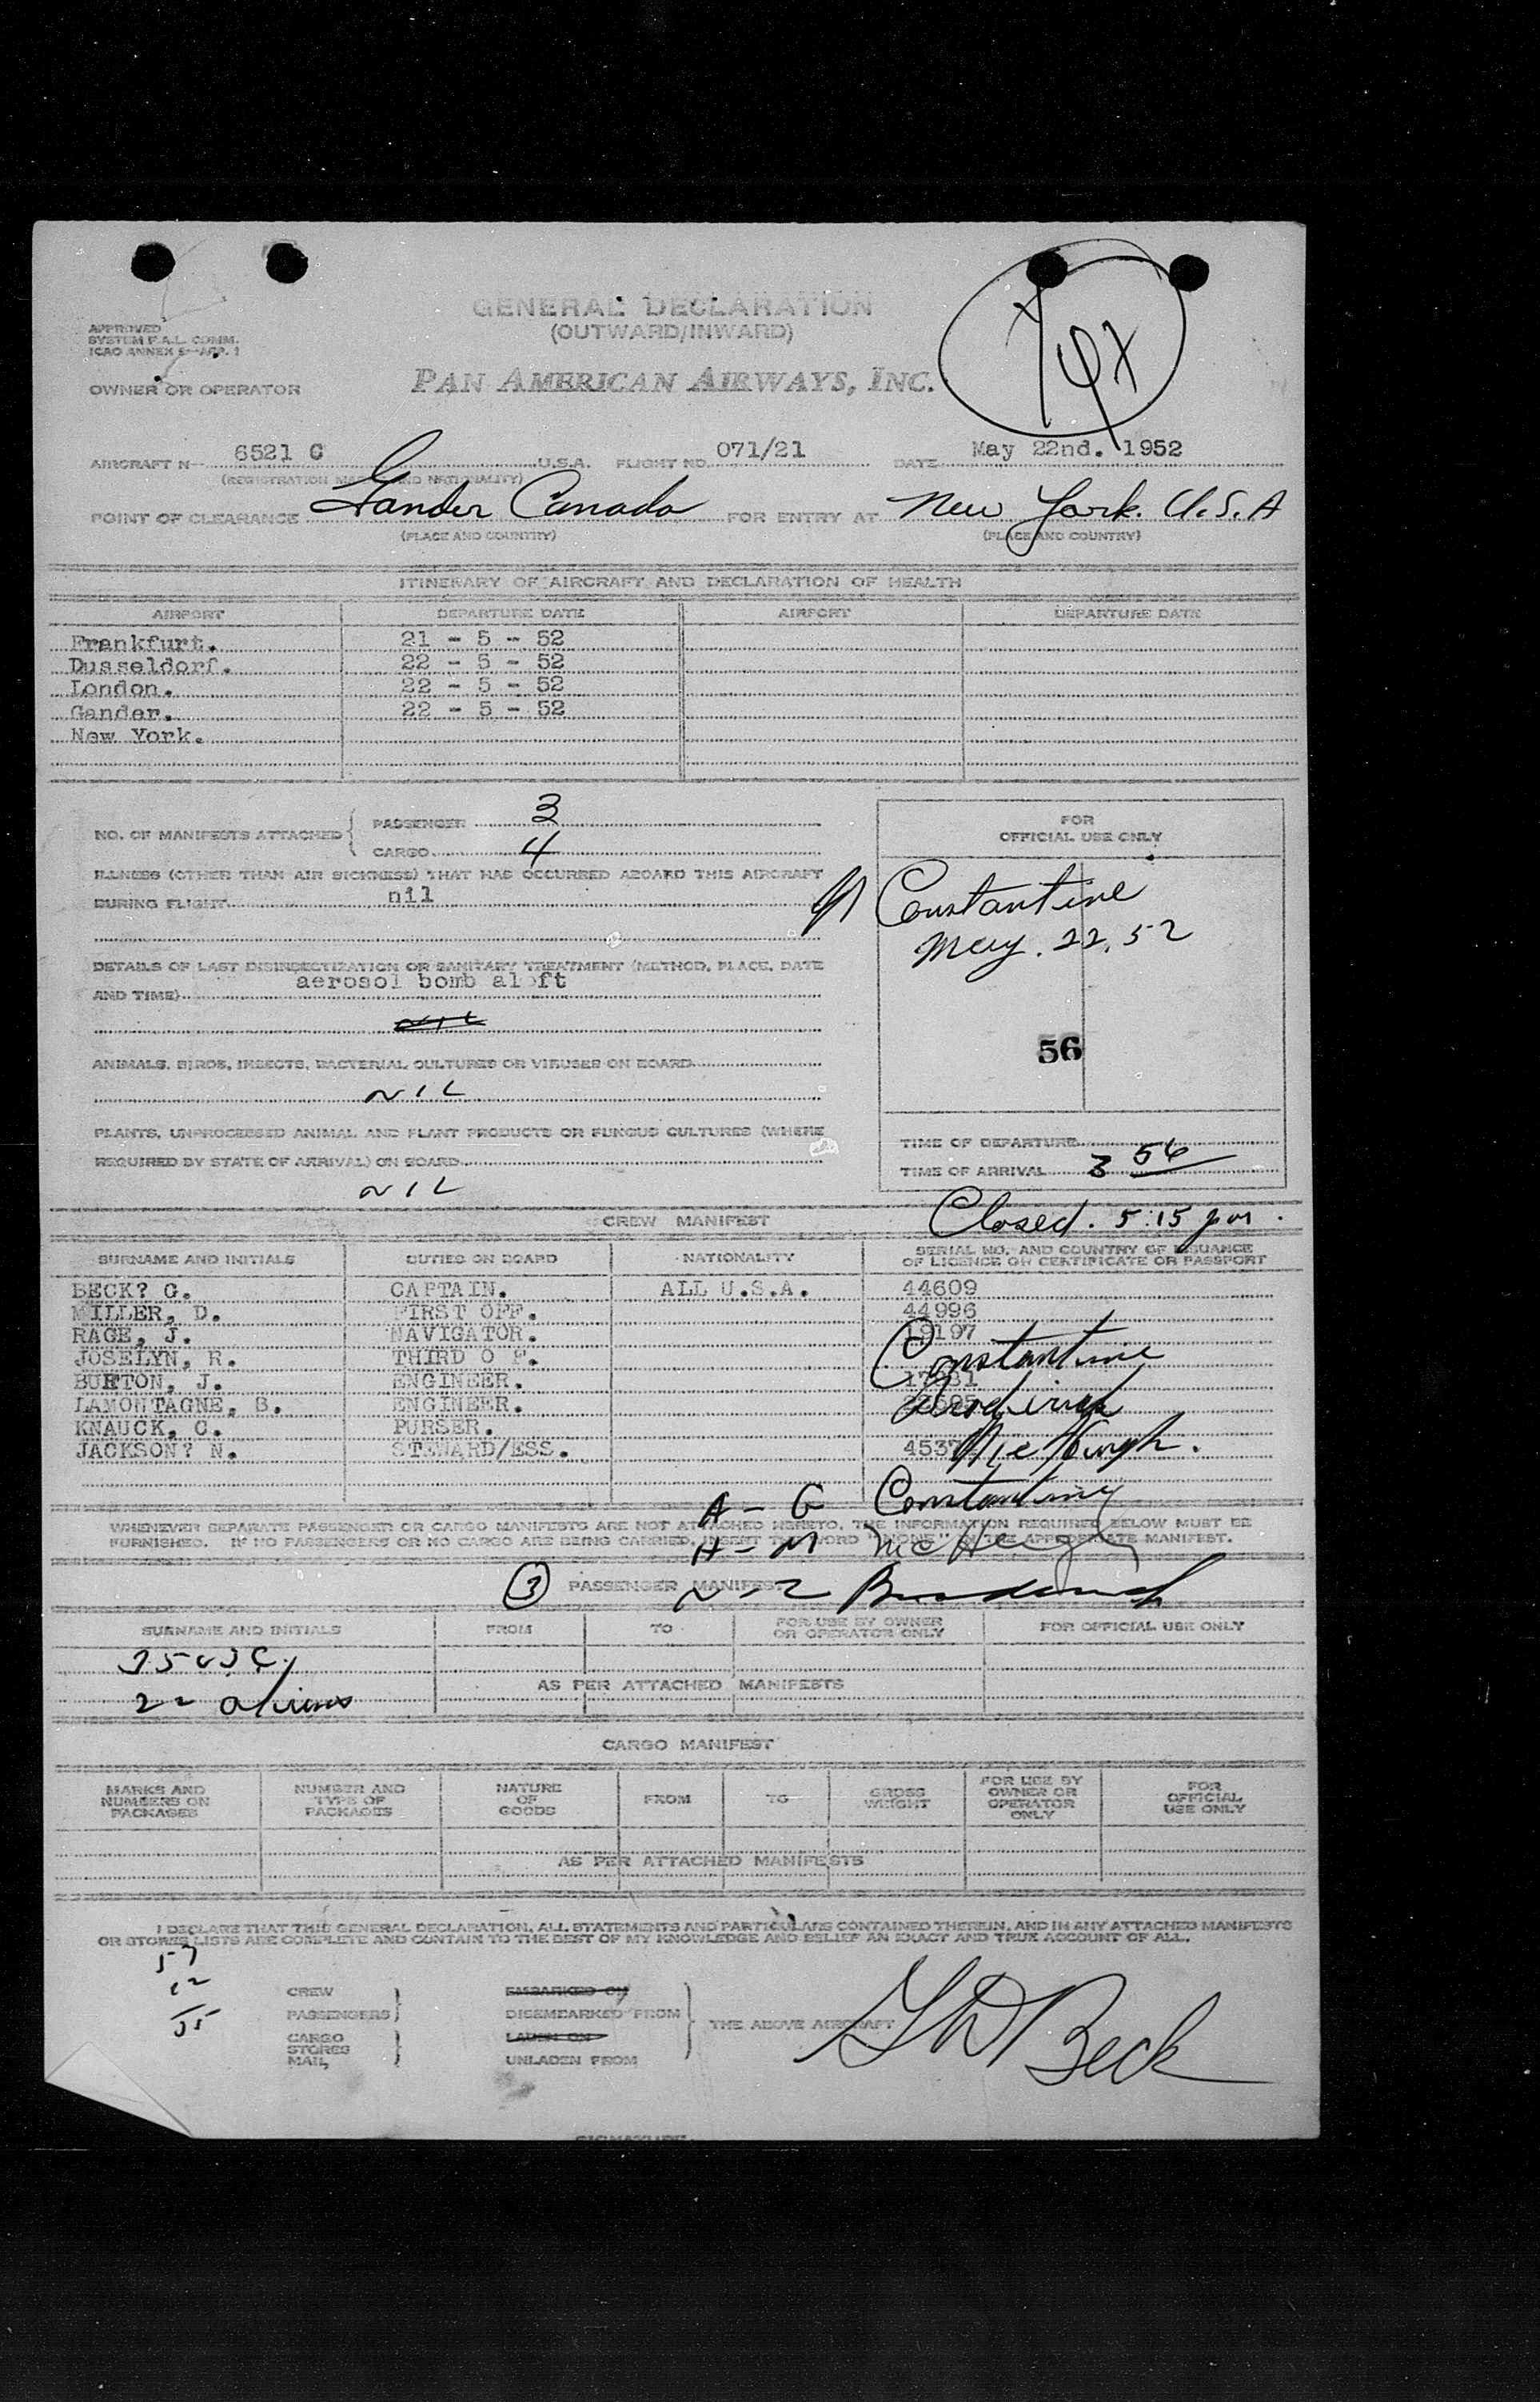 GENERAL DECLARATION
(OUTWARD/INWARD)
APPROVED
SYSTEM F.A.L. COMM.
ICAO ANNEX 9—APP. 1
OWNER OR OPERATOR PAN AMERICAN AIRWAYS, INC.
AIRCRAFT N— 6521 C U.S.A. FLIGHT NO. 071/21 DATE May 22nd. 1952
(REGISTRATION MARKS AND NATIONALITY)
POINT OF CLEARANCE Gander Canada FOR ENTRY AT New York. U.S.A
(PLACE AND COUNTRY) (PLACE AND COUNTRY)
ITINERARY OF AIRCRAFT AND DECLARATION OF HEALTH
AIRPORT DEPARTURE DATE AIRPORT DEPARTURE DATE
Frankfurt. 21 - 5 - 52
Dusseldorf. 22 - 5 - 52
London. 22 - 5 - 52
Gander. 22 - 5 - 52
New York.
NO. OF MANIFESTS ATTACHED PASSENGER 3
CARGO 4
FOR
OFFICIAL USE ONLY
ILLNESS (OTHER THAN AIR SICKNESS) THAT HAS OCCURRED ABOARD THIS AIRCRAFT
DURING FLIGHT nil
Constantine
May. 22, 52
DETAILS OF LAST DISINSECTIZATION OR SANITARY TREATMENT (METHOD, PLACE, DATE
AND TIME) aerosol bomb aloft
NIL
56
ANIMALS, BIRDS, INSECTS, BACTERIAL CULTURES OR VIRUSES ON BOARD
NIL
PLANTS, UNPROCESSED ANIMAL AND PLANT PRODUCTS OR FUNGUS CULTURES (WHERE
REQUIRED BY STATE OF ARRIVAL) ON BOARD
NIL
TIME OF DEPARTURE
TIME OF ARRIVAL 3 56
Closed. 5:15 pm.
CREW MANIFEST
SURNAME AND INITIALS DUTIES ON BOARD NATIONALITY SERIAL NO. AND COUNTRY OF ISSUANCE
OF LICENCE OR CERTIFICATE OR PASSPORT
BECK? G. CAPTAIN. ALL U.S.A. 44609
MILLER, D. FIRST OFF. 44996
RAGE, J. NAVIGATOR. 19197
JOSELYN, R. THIRD O F. Constantine
BURTON, J. ENGINEER.
LAMONTAGNE, B. ENGINEER.
KNAUCK, C. PURSER.
JACKSON? N. STEWARD/ESS.
A - G Constantine
WHENEVER SEPARATE PASSENGER OR CARGO MANIFESTS ARE NOT ATTACHED HERETO, THE INFORMATION REQUIRED BELOW MUST BE
FURNISHED. IF NO PASSENGERS OR NO CARGO ARE BEING CARRIED, INSERT THE WORD "NONE" IN THE APPROPRIATE MANIFEST.
H - M
3 PASSENGER MANIFEST
SURNAME AND INITIALS FROM TO FOR USE BY OWNER
OR OPERATOR ONLY FOR OFFICIAL USE ONLY
22 aliens
AS PER ATTACHED MANIFESTS
CARGO MANIFEST
MARKS AND
NUMBERS ON
PACKAGES
NUMBER AND
TYPE OF
PACKAGES
NATURE
OF
GOODS
FROM
TO
GROSS
WEIGHT
FOR USE BY
OWNER OR
OPERATOR
ONLY
FOR
OFFICIAL
USE ONLY
AS PER ATTACHED MANIFESTS
I DECLARE THAT THIS GENERAL DECLARATION, ALL STATEMENTS AND PARTICULARS CONTAINED THEREIN, AND IN ANY ATTACHED MANIFESTS
OR STORES LISTS ARE COMPLETE AND CONTAIN TO THE BEST OF MY KNOWLEDGE AND BELIEF AN EXACT AND TRUE ACCOUNT OF ALL.
CREW
PASSENGERS
CARGO
STORES
MAIL
EMBARKED ON
DISEMBARKED FROM
LADEN ON
UNLADEN FROM
THE ABOVE AIRCRAFT
G D Beck
SIGNATURE